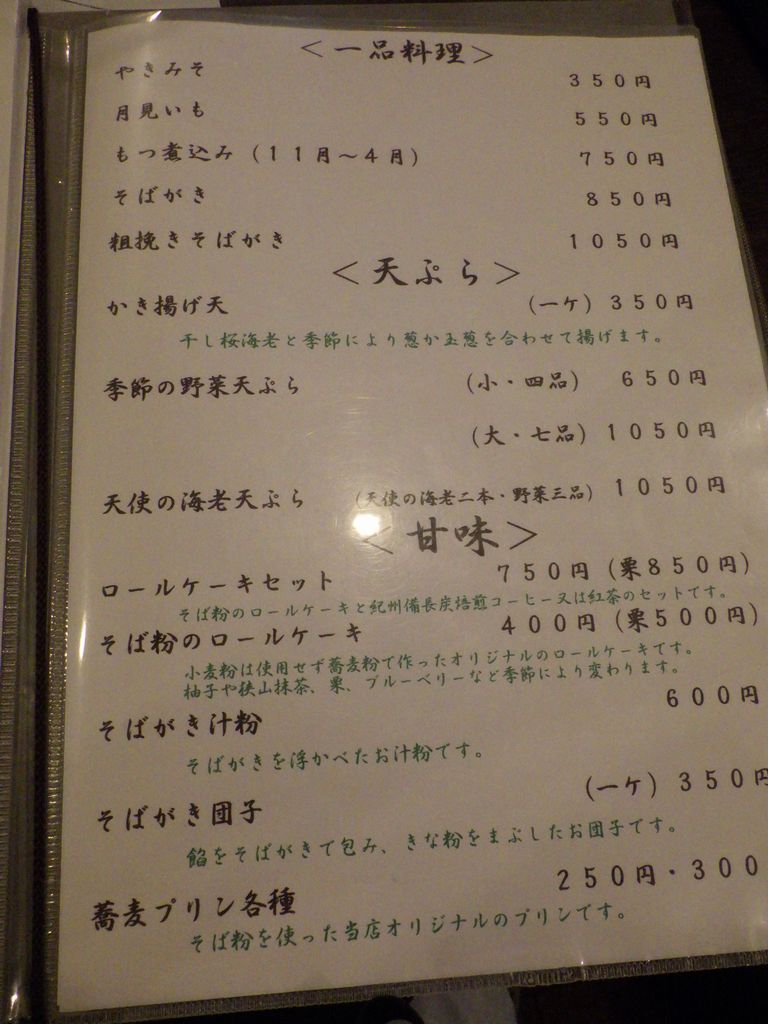 ＜一品料理＞
やきみそ 350円
月見いも 550円
もつ煮込み（11月～4月） 750円
そばがき 850円
粗挽きそばがき 1050円
＜天ぷら＞
かき揚げ天 （一ケ）350円
干し桜海老と季節により葱か玉葱を合わせて揚げます。
季節の野菜天ぷら （小・四品） 650円
（大・七品）1050円
天使の海老天ぷら （天使の海老二本・野菜三品）1050円
＜甘味＞
ロールケーキセット 750円（栗850円）
そば粉のロールケーキと紀州備長炭焙煎コーヒー又は紅茶のセットです。
そば粉のロールケーキ 400円（栗500円）
小麦粉は使用せず蕎麦粉で作ったオリジナルのロールケーキです。
柚子や狭山抹茶、栗、ブルーベリーなど季節により変わります。
そばがき汁粉 600円
そばがきを浮かべたお汁粉です。
そばがき団子 （一ケ）350円
餡をそばがきで包み、きな粉をまぶしたお団子です。
蕎麦プリン各種 250円・300
そば粉を使った当店オリジナルのプリンです。